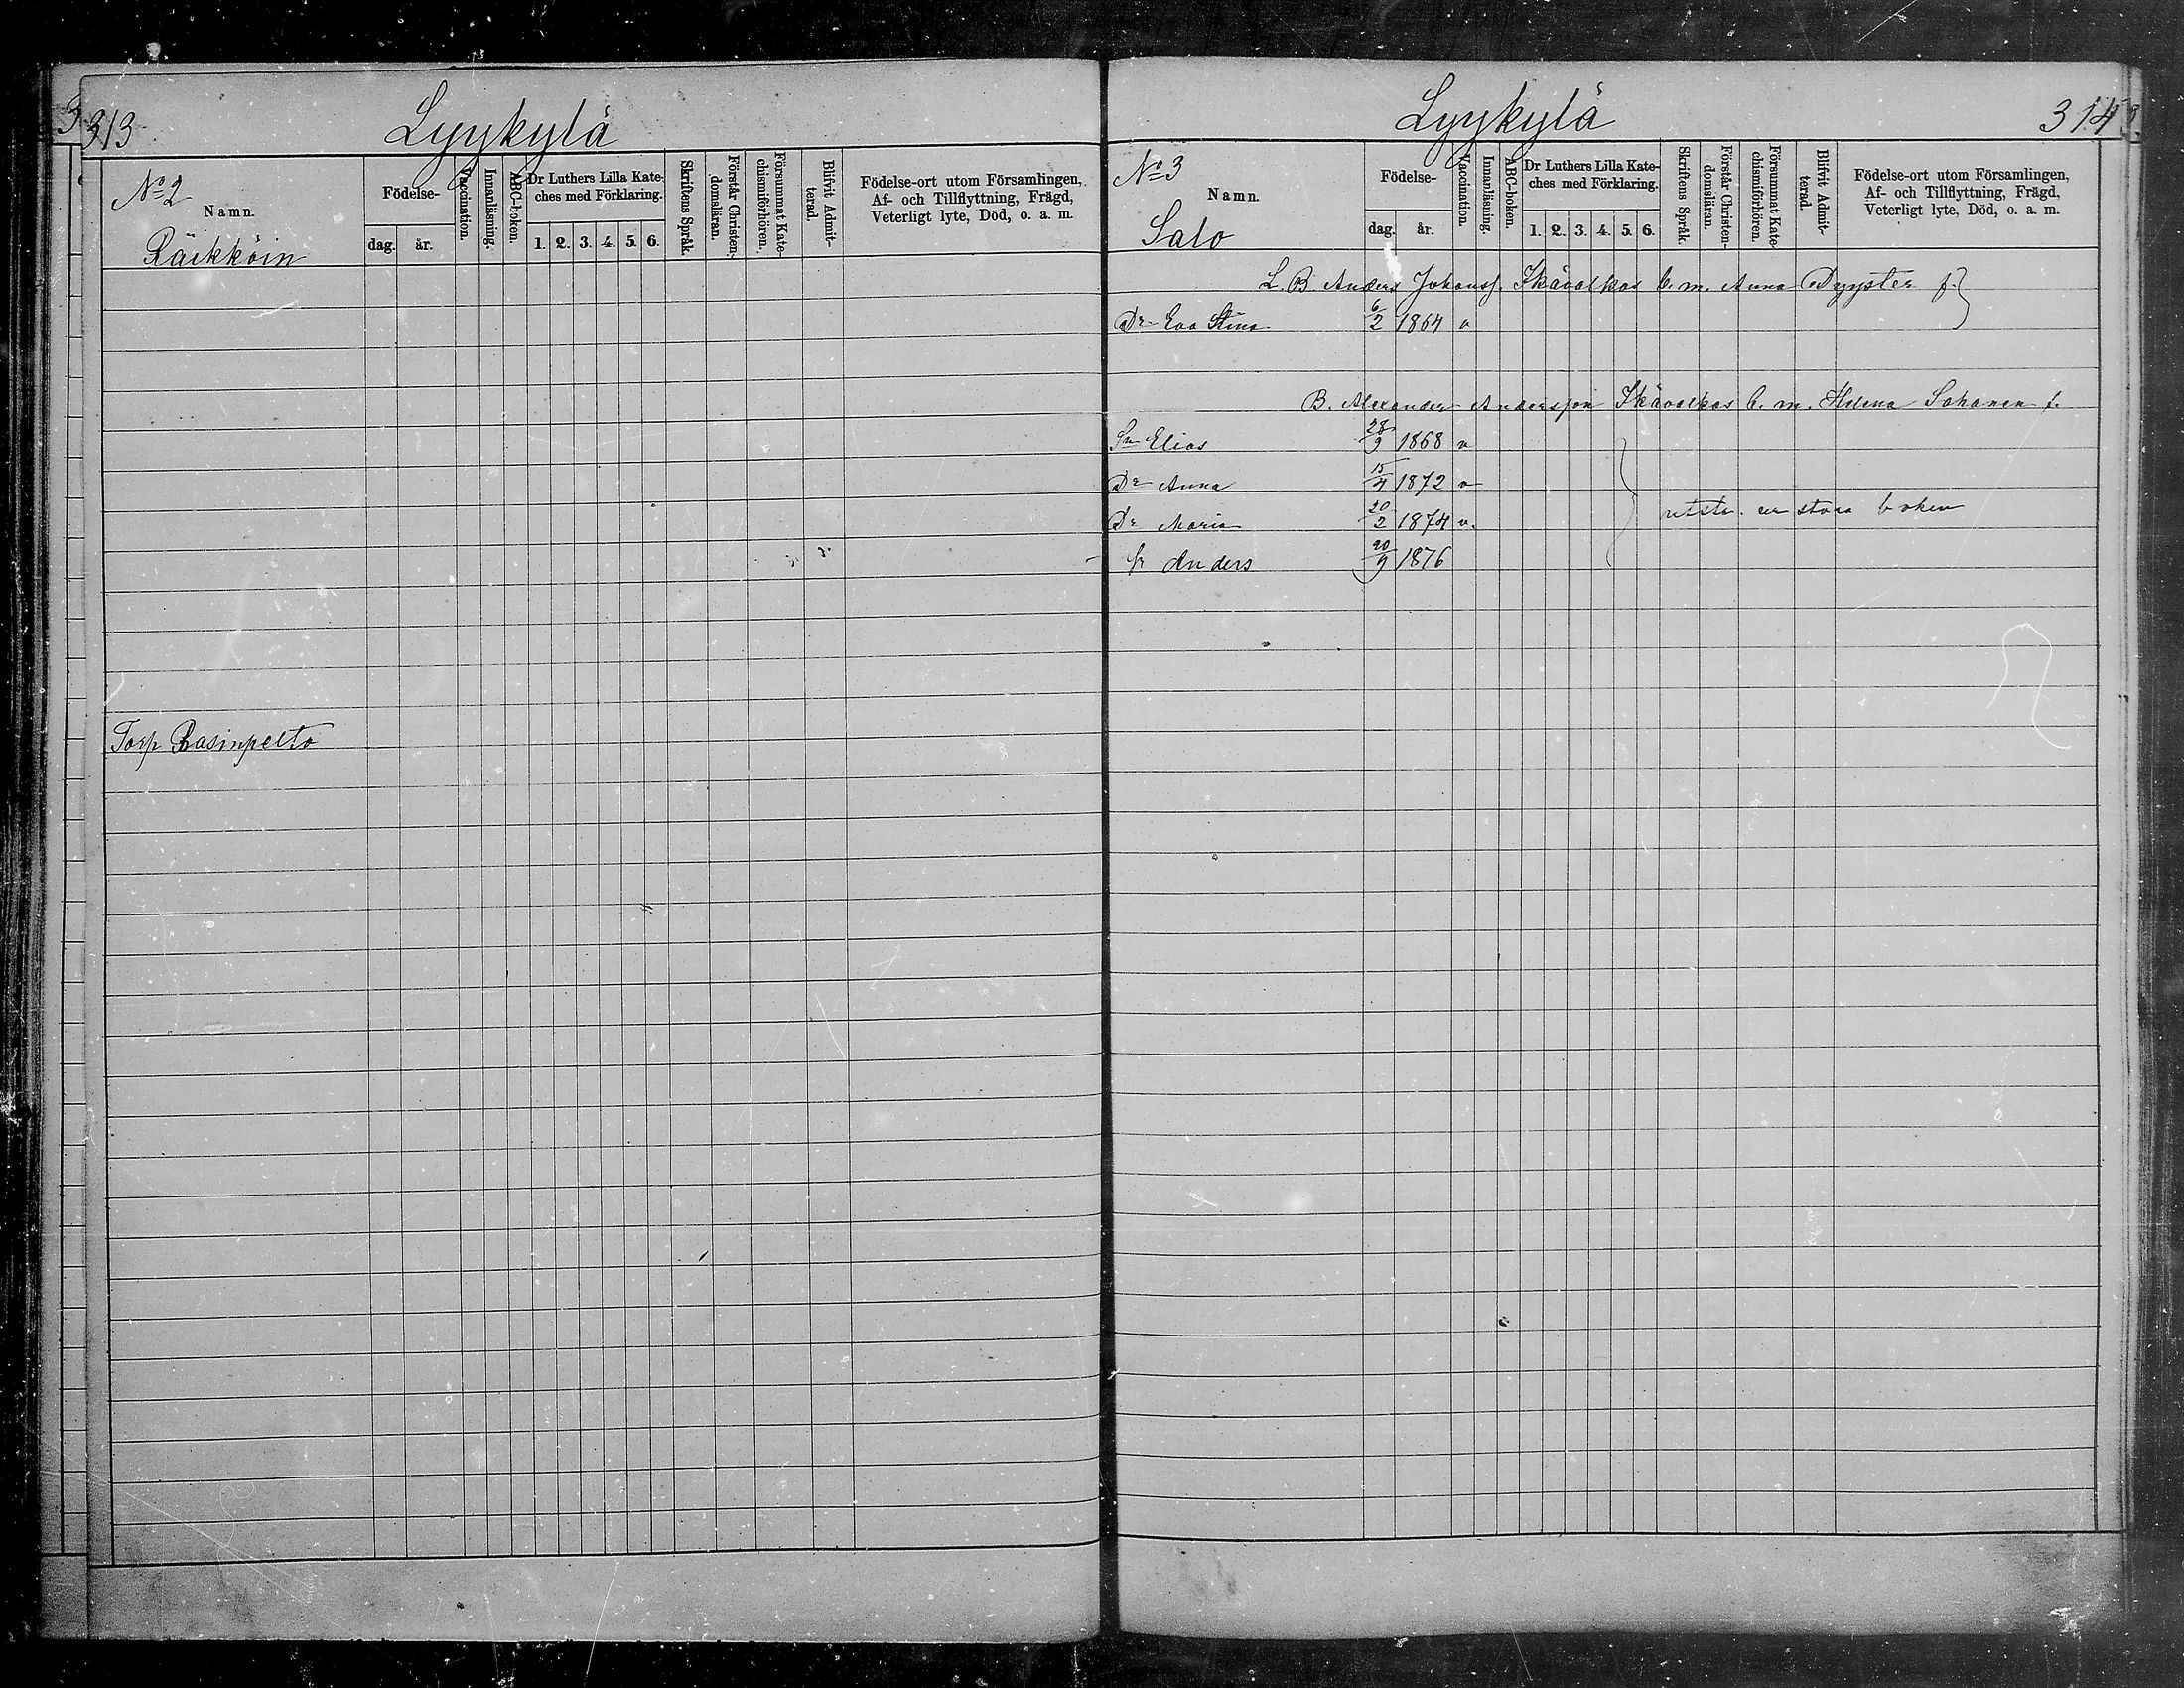 313
Lyykylä
No 2
Namn.
Räikköin
Födelse-
dag.
år.
Vaccination.
Innanläsning.
ABC-boken.
Dr Luthers Lilla Kate-
ches med Förklaring.
1. 2. 3. 4. 5. 6.
Skriftens Språk.
Förstår Christen-
domsläran.
Försummat Kate-
chismiförhören.
Blifvit Admit-
terad.
Födelse-ort utom Församlingen,
Af- och Tillflyttning, Frägd,
Veterligt lyte, Död, o. a. m.
Torp Rasinpelto
Lyykylä
314
No 3
Namn.
Salo
Födelse-
dag.
år.
Vaccination.
Innanläsning.
ABC-boken.
Dr Luthers Lilla Kate-
ches med Förklaring.
1. 2. 3. 4. 5. 6.
Skriftens Språk.
Förstår Christen-
domsläran.
Försummat Kate-
chismiförhören.
Blifvit Admit-
terad.
Födelse-ort utom Församlingen,
Af- och Tillflyttning, Frägd,
Veterligt lyte, Död, o. a. m.
L. B Anders Johanss. Skävalkas b. m. Anna Dyyster f.
Dr Eva Stina 6/2 1864 v
B. Alexander Andersson Skävalkas b. m. Helena Sohanen f.
Sn Elias 28/9 1868 v
Dr Anna 15/4 1872 v
Dr Maria 20/2 1874 v. stora boken
Sn Anders 20/9 1876